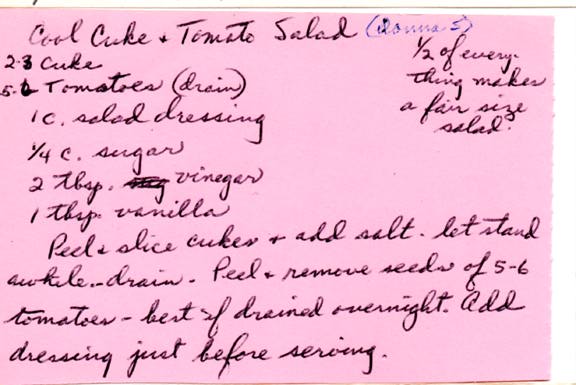 Cool Cuke + Tomato Salad (Donna S)
1/2 of every-
thing makes
a fair size
salad.
2-3 Cuke
5-6 Tomatoes (drain)
1 c. salad dressing
1/4 c. sugar
2 tbsp. vinegar
1 tbsp. vanilla
Peel + slice cukes + add salt. let stand
awhile - drain. Peel + remove seeds of 5-6
tomatoes - best if drained overnight. Add
dressing just before serving.